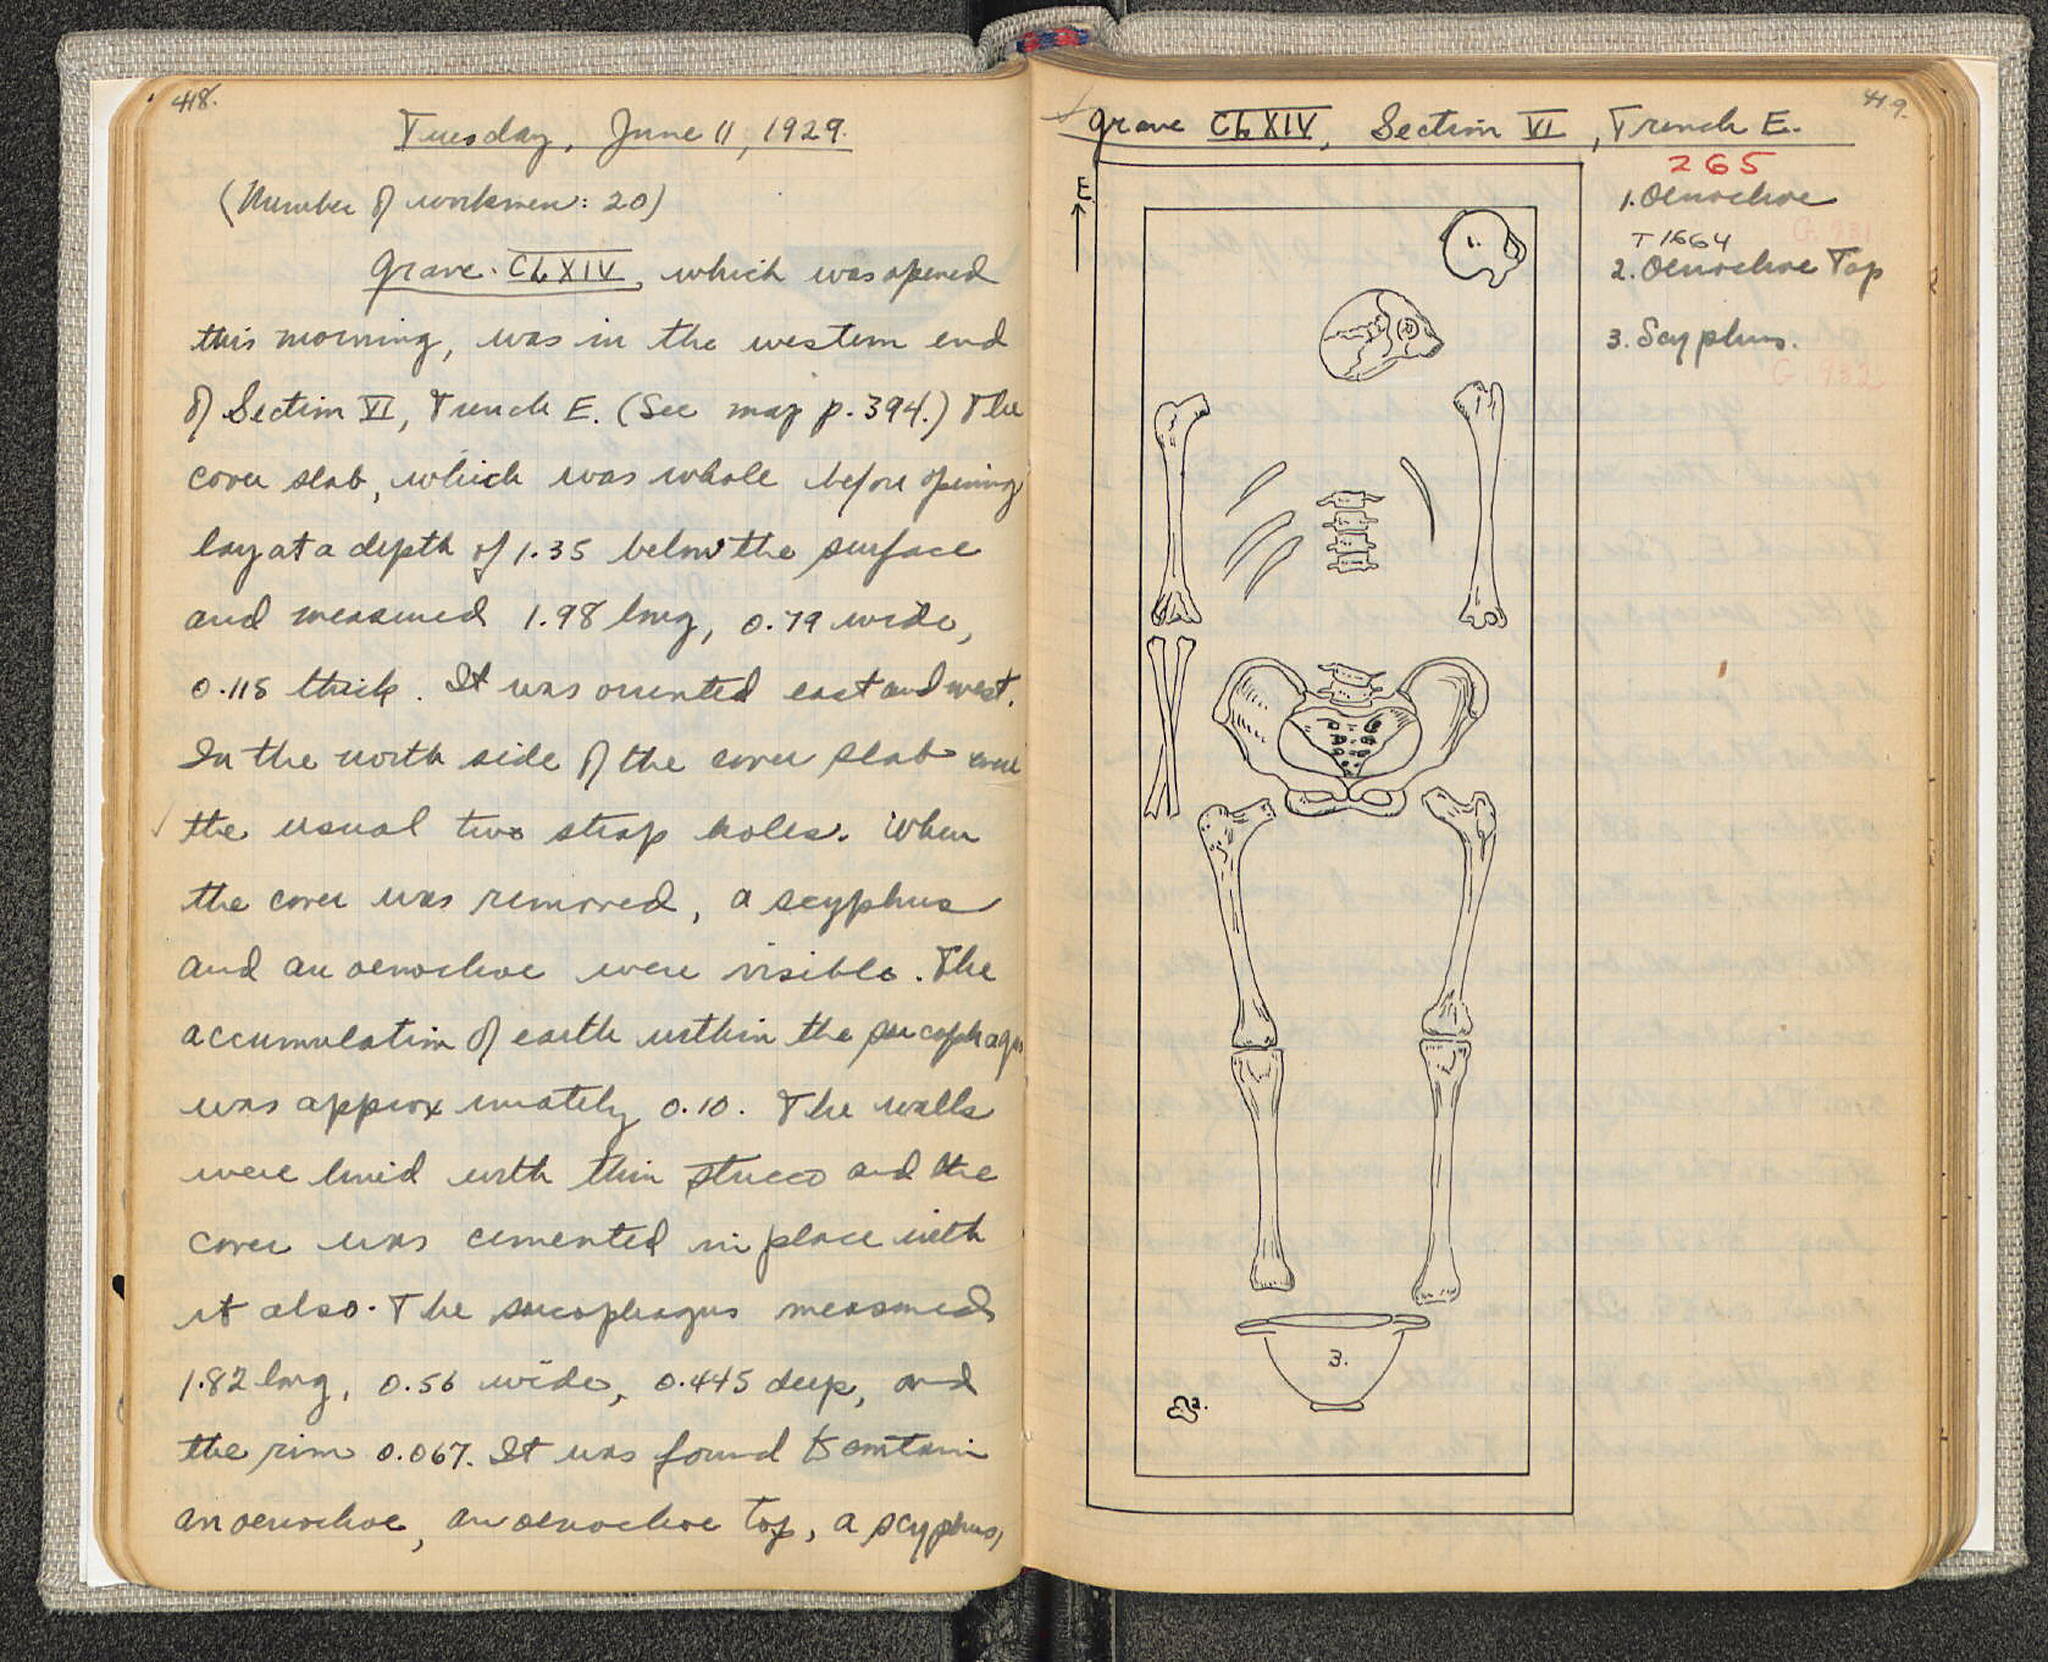 418.
Tuesday, June 11, 1929.
(Number of workmen: 20)
Grave CLXIV, which was opened
this morning, was in the western end
of Section VI, Trench E. (See map p. 394.) The
cover slab, which was whole before opening
lay at a depth of 1.35 below the surface
and measured 1.98 long, 0.79 wide,
0.115 thick. It was oriented east and west.
In the north side of the cover slab were
the usual two strap holes. When
the cover was removed, a scyphus
and an oenochoe were visible. The
accumulation of earth within the sarcophagus
was approximately 0.10. The walls
were lined with thin stucco and the
cover was cemented in place with
it also. The sarcophagus measured
1.82 long, 0.56 wide, 0.445 deep, and
the rim 0.067. It was found to contain
an oenochoe, an oenochoe top, a scyphus,
419.
Grave CLXIV, Section VI, Trench E.
265
E.
1. Oenochoe
G. 931
T 1664
2. Oenochoe Top
3. Scyphus.
G. 932
1.
3.
2.